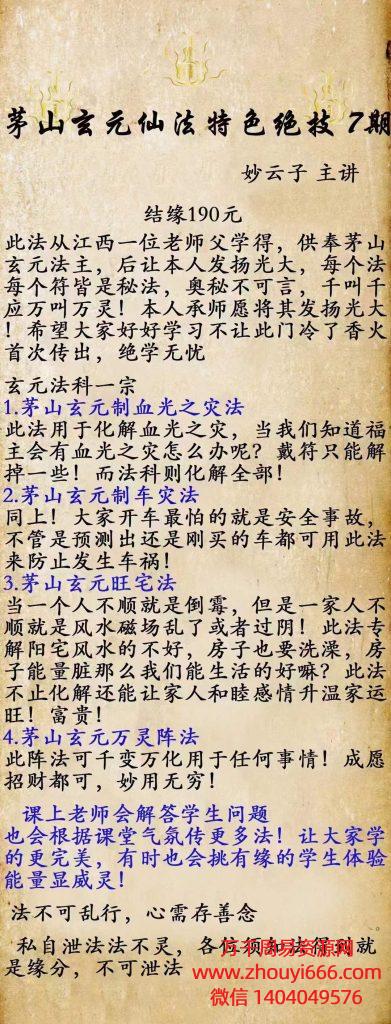 茅山玄元仙法特色绝技7期
妙云子 主讲
结缘190元
此法从江西一位老师父学得，供奉茅山
玄元法主，后让本人发扬光大，每个法
每个符皆是秘法，奥秘不可言，千叫千
应万叫万灵！本人承师愿将其发扬光大
！希望大家好好学习不让此门冷了香火
首次传出，绝学无忧
玄元法科一宗
1.茅山玄元制血光之灾法
此法用于化解血光之灾，当我们知道福
主会有血光之灾怎么办呢？戴符只能解
掉一些！而法科则化解全部！
2.茅山玄元制车灾法
同上！大家开车最怕的就是安全事故，
不管是预测出还是刚买的车都可用此法
来防止发生车祸！
3.茅山玄元旺宅法
当一个人不顺就是倒霉，但是一家人不
顺就是风水磁场乱了或者过阴！此法专
解阳宅风水的不好，房子也要洗澡，房
子能量脏那么我们能生活的好嘛？此法
不止化解还能让家人和睦感情升温家运
旺！富贵！
4.茅山玄元万灵阵法
此阵法可千变万化用于任何事情！成愿
招财都可，妙用无穷！
课上老师会解答学生问题
也会根据课堂气氛传更多法！让大家学
的更完美，有时也会挑有缘的学生体验
能量显威灵！
法不可乱行，心需存善念
私自泄法法不灵，各位须知法得到就
是缘分，不可泄法
www.zhouyi666.com
微信 1404049576